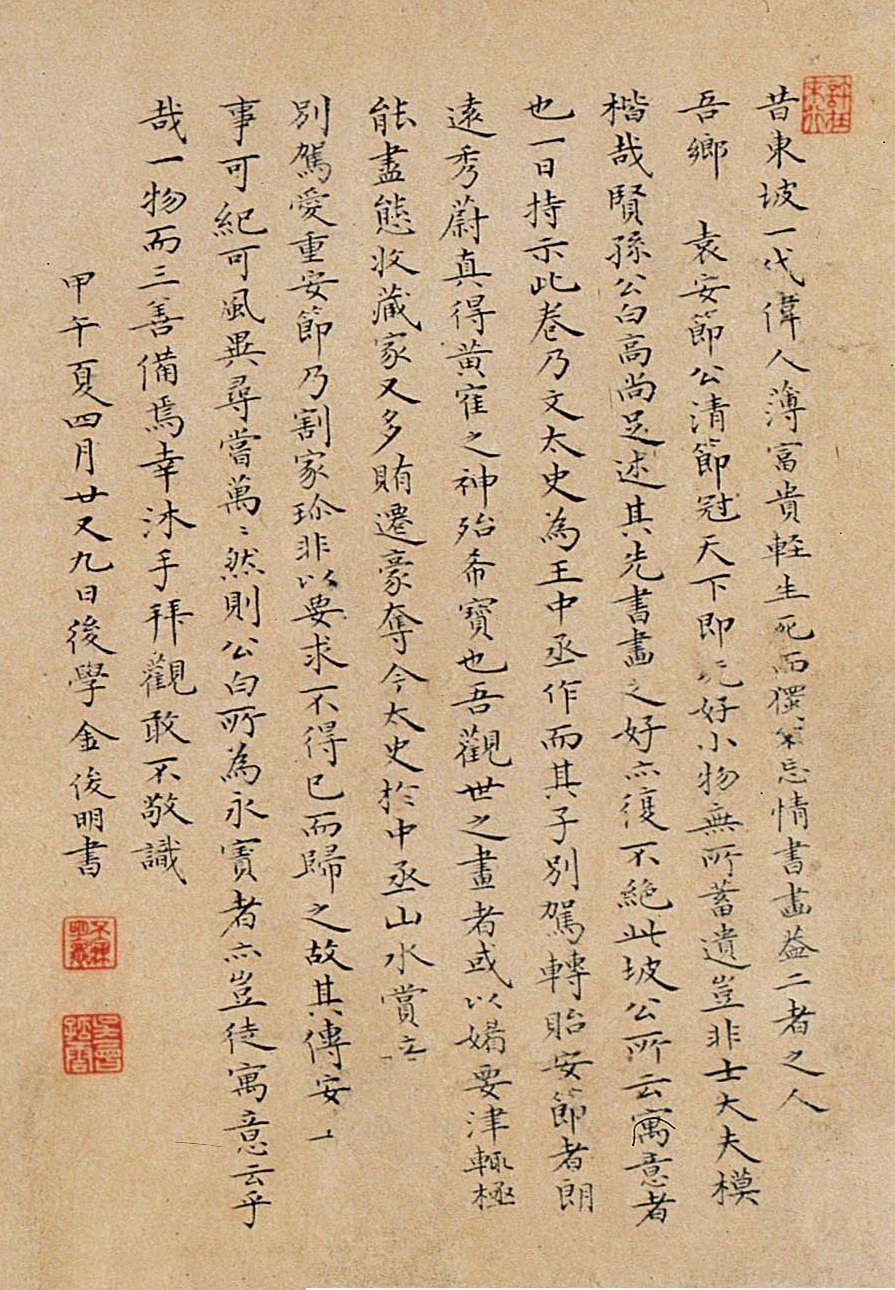 昔東坡一代偉人薄富貴輕生死而獨不忘情書畫益二者之人
吾鄉 袁安節公清節冠天下即玩好小物無所蓄遺豈非士大夫模
楷哉賢孫公白高尚足述其先書畫之好亦復不絕此坡公所云寓意者
也一日持示此卷乃文太史為王中丞作而其子別駕轉貽安節者朗
遠秀蔚真得黃隺之神殆希寶也吾觀世之畫者或以媚要津輒極
能盡態收藏家又多賄遷豪奪今太史於中丞山水賞
別駕愛重安節乃割家珍非以要求不得已而歸之故其傳安
事可紀可風異尋嘗萬〻然則公白所為永寶者亦豈徒寓意云乎
哉一物而三善備焉幸沐手拜觀敢不敬識
甲午夏四月廿又九日後學金俊明書